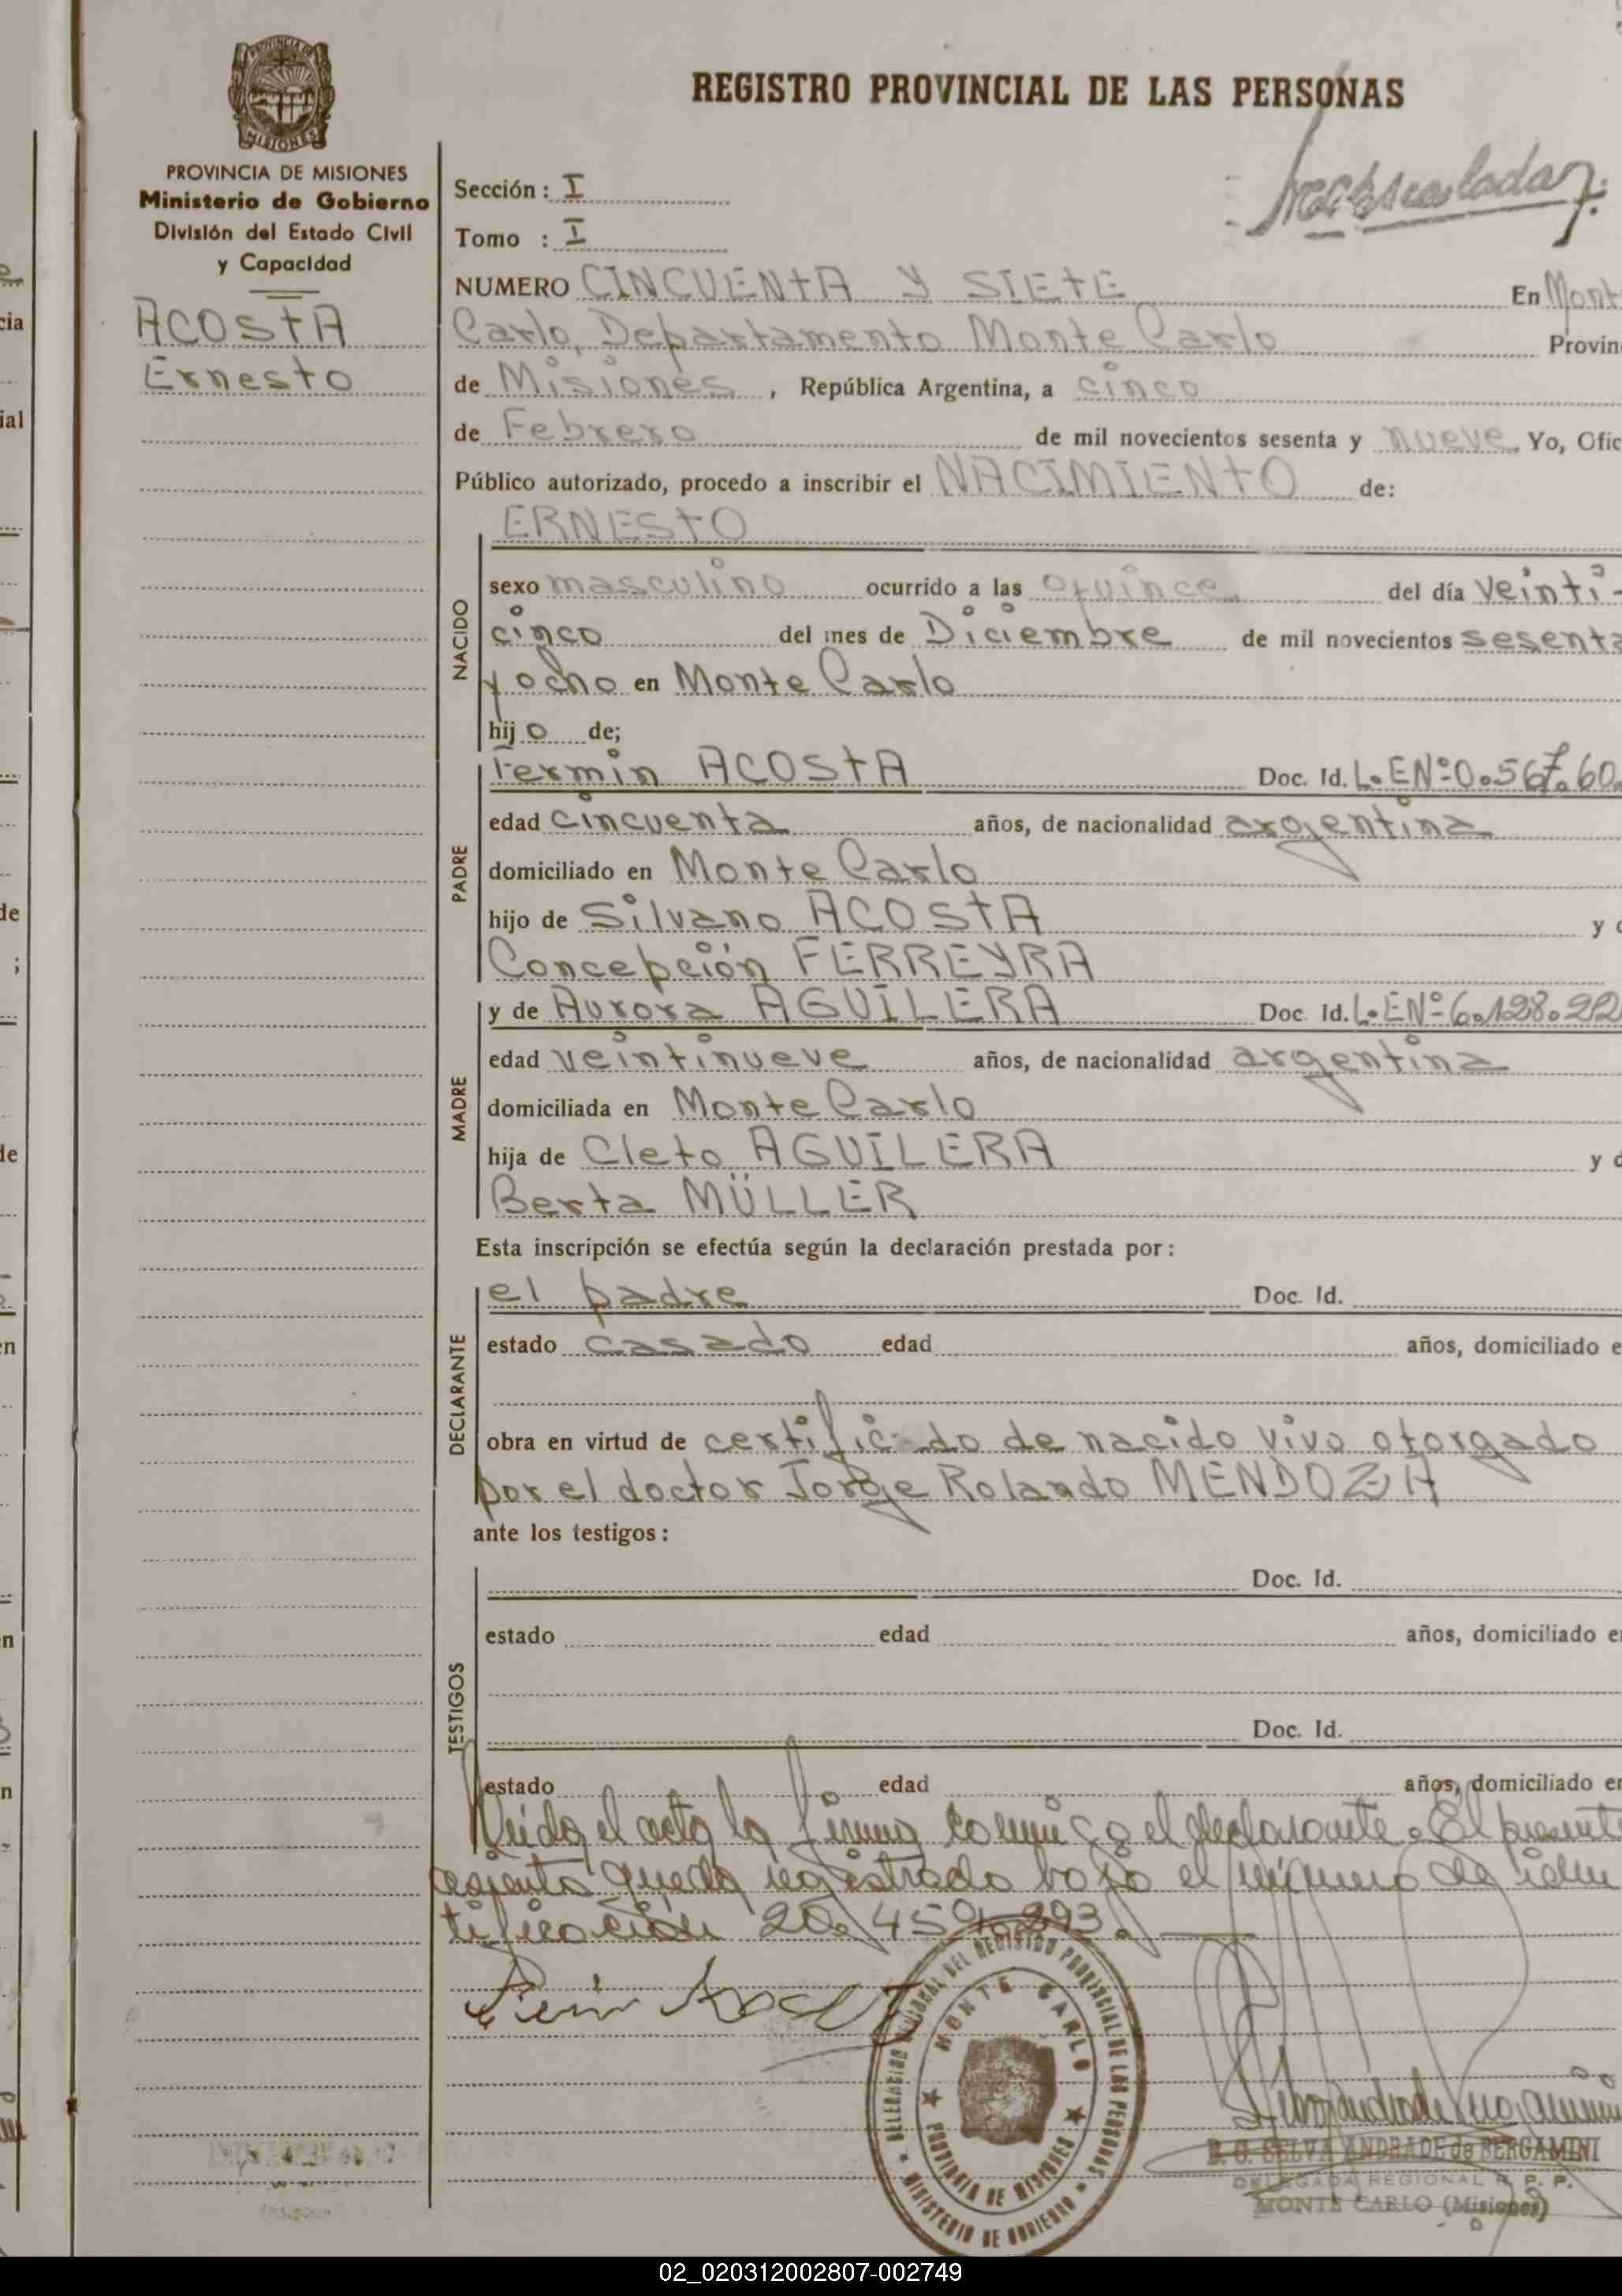 REGISTRO PROVINCIAL DE LAS PERSONAS
PROVINCIA DE MISIONES
Ministerio de Gobierno
División del Estado Civil
y Capacidad
ACOSTA
Ernesto
Sección: I
Tomo : I
NUMERO CINCUENTA Y SIETE En Mont
Carlo, Departamento Monte Carlo Provin
de Misiones, República Argentina, a cinco
de Febrero de mil novecientos sesenta y nueve Yo, Ofic
Público autorizado, procedo a inscribir el NACIMIENTO de:
ERNESTO
NACIDO
sexo masculino ocurrido a las quince del día Veinti-
cinco del mes de Diciembre de mil novecientos sesenta
y ocho en Monte Carlo
hijo de;
PADRE
Fermin ACOSTA Doc. Id. L.ENº0.567.60
edad cincuenta años, de nacionalidad argentina
domiciliado en Monte Carlo
hijo de Silvano ACOSTA y
Concepción FERREYRA
MADRE
y de Aurora AGUILERA Doc. Id. L.ENº6.128.92
edad veintinueve años, de nacionalidad argentina
domiciliada en Monte Carlo
hija de Cleto AGUILERA y
Berta MÜLLER
Esta inscripción se efectúa según la declaración prestada por:
DECLARANTE
el padre Doc. Id.
estado casado edad años, domiciliado e
obra en virtud de certificado de nacido vivo otorgado
por el doctor Jorge Rolando MENDOZA
ante los testigos:
TESTIGOS
Doc. Id.
estado edad años, domiciliado en
Doc. Id.
estado edad años, domiciliado en
Leída el acta la firma conmigo el declarante. El present
asiento queda registrado bajo el número de iden
tificación 20.459.293.
DELEGACION REGIONAL DEL REGISTRO PROVINCIAL DE LAS PERSONAS
MONTE CARLO
PROVINCIA DE MISIONES
MINISTERIO DE GOBIERNO
B. O. SELVA ANDRADE de BERGAMINI
DELEGADA REGIONAL R. P. P.
MONTE CARLO (Misiones)
02_020312002807-002749